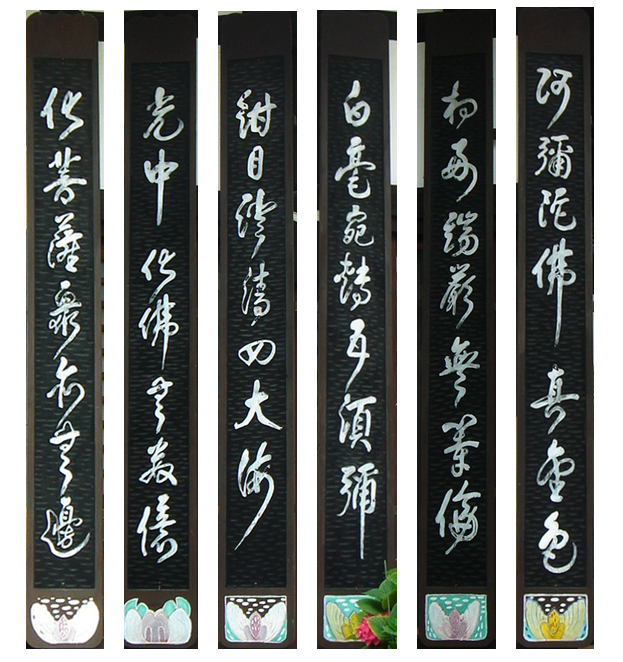 阿彌陀佛真金色
相好端嚴無等倫
白毫宛轉五須彌
紺目澄清四大海
光中化佛無數億
化菩薩眾亦無邊